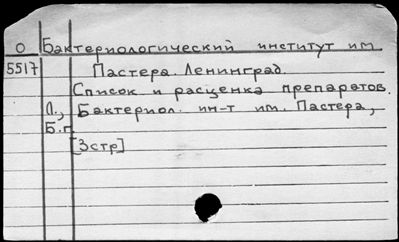 О Бактериологический институт им
5517 Пастера. Ленинград.
Список и расценка препаратов.
Л., Бактериол. ин-т им. Пастера,
Б.г.
[3стр]